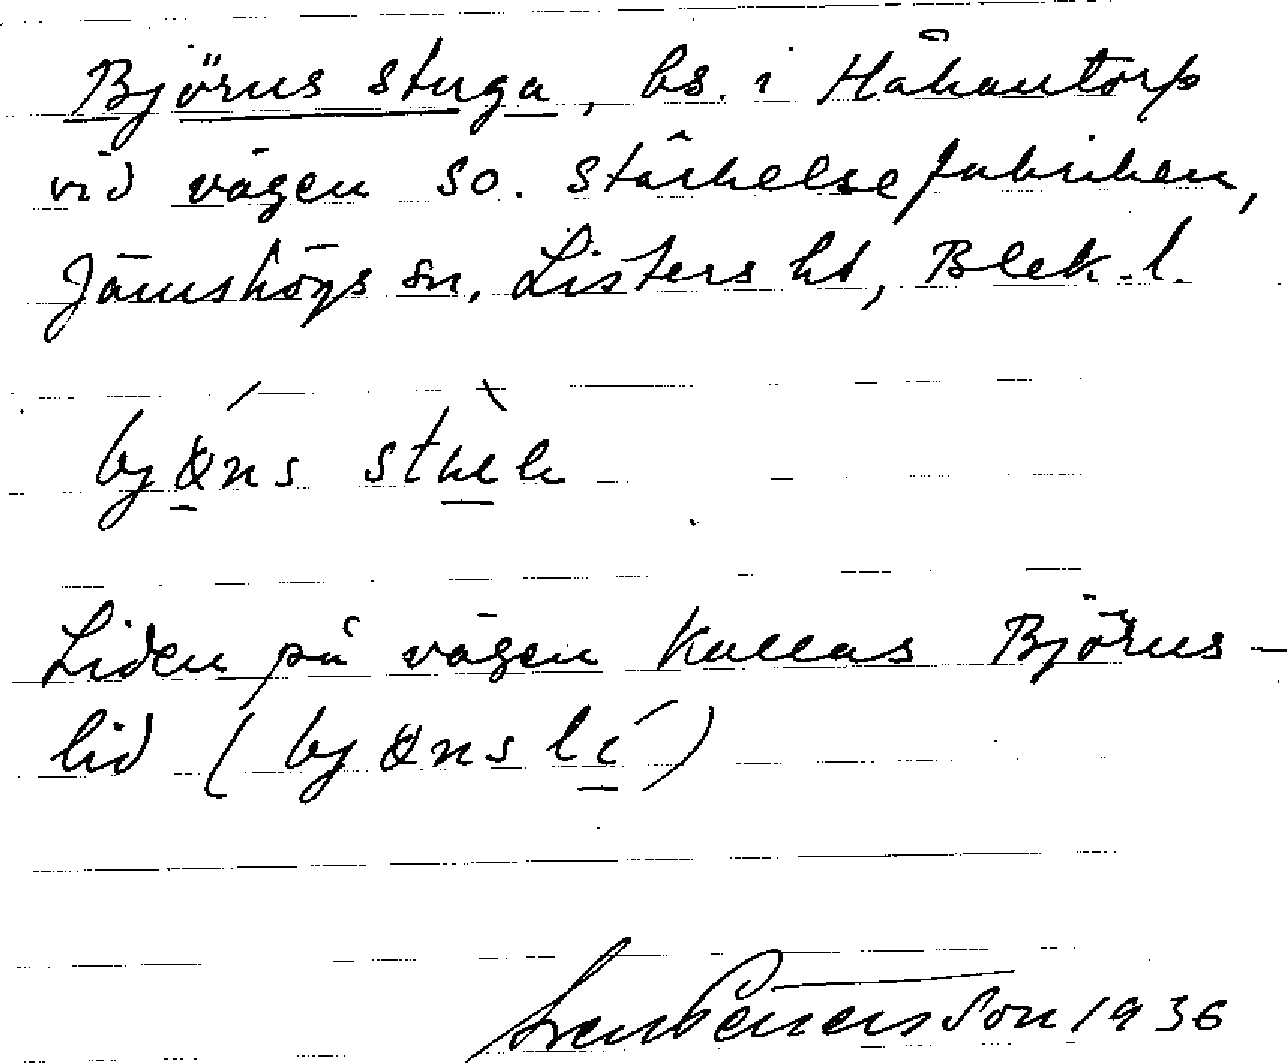 Björns stuga, bs. i Håkantorp
vid vägen so. stärkelsefabriken,
Jämshögs sn, Listers hd, Blek. l.
Liden på vägen kallas Björns-
lid (
Sven Benersson 1936